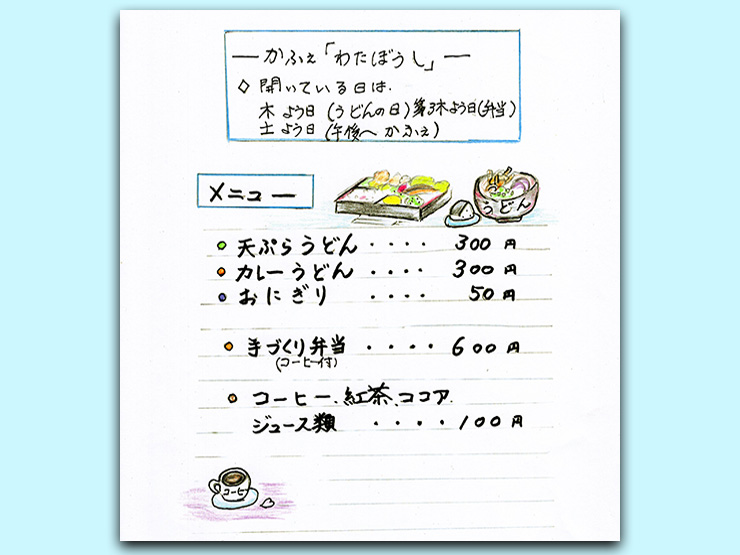 ―かふぇ「わたぼうし」―
◇ 開いている日は.
木よう日(うどんの日)第3木よう日(弁当)
土よう日(午後へ かふぇ)
メニュー
うどん
天ぷらうどん・・・・300円
カレーうどん・・・・300円
おにぎり・・・・50円
手づくり弁当・・・・600円
(コーヒー付)
コーヒー、紅茶、ココア.
ジュース類・・・・100円
コーヒー